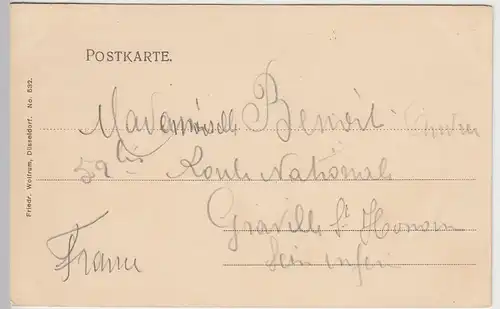 POSTKARTE.
Friedr. Wolfrum, Düsseldorf. No. 532.
Mademoiselle Benoit
59 bis Route Nationale
Graville St Honorine
Seine infer
France